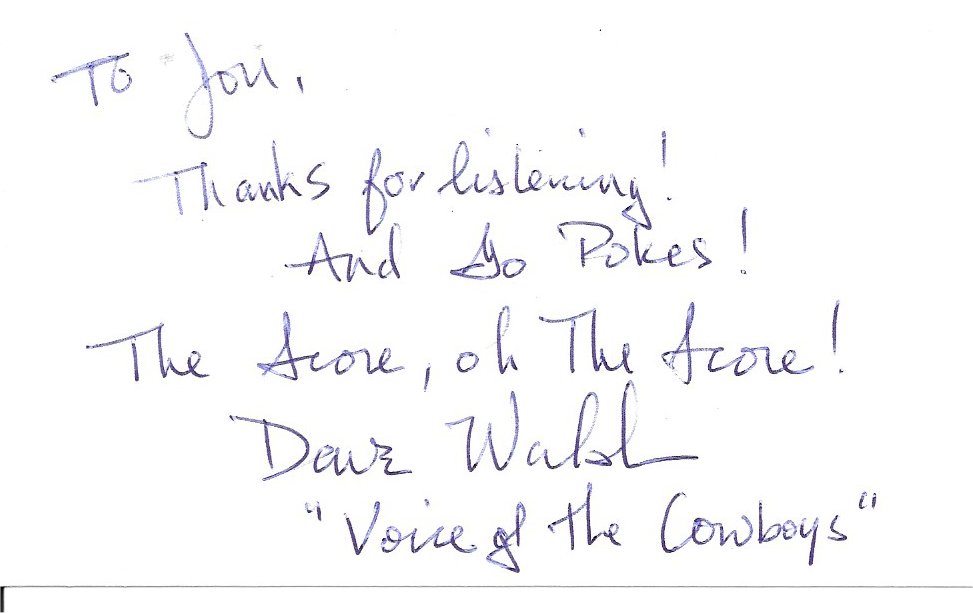 To Jori,
Thanks for listening!
And Go Pokes!
The Score, oh The Score!
Dave Walsh
"Voice of the Cowboys"